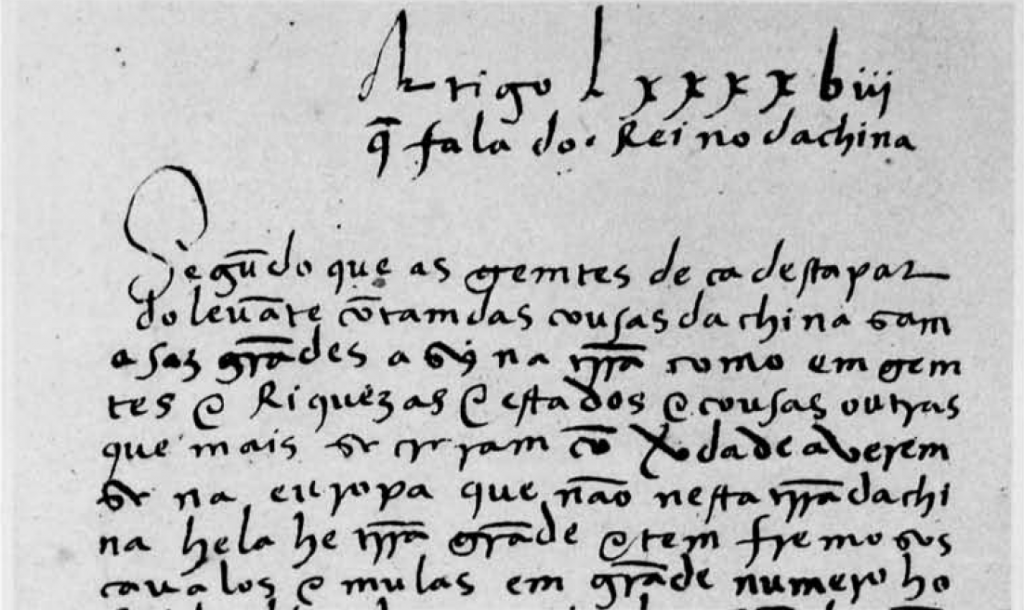 Artigo Lxxxxbiij
q̃ fala do. Reino dachina
Segũdo que as gemtes de ca destapar
do leuãte cõtam das cousas da china sam
asaz grãdes asy na trra como em gem
tes e Riquezas e estados e cousas outras
que mais se cryram cõ verdade averem
se na europa que não nesta trra da chi
na hela he trra grãde e tem fremosos
caualos e mulas em grãde numero ho